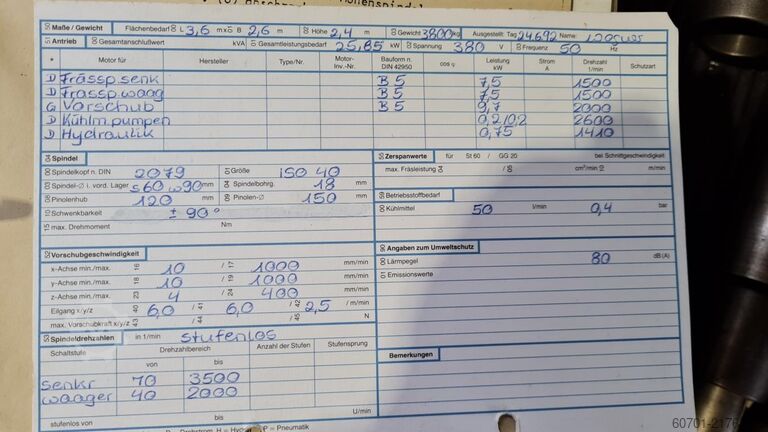 Maße / Gewicht Flächenbedarf L 3,6 m x B 2,6 m Höhe 2,4 m Gewicht 3800 kg Ausgestellt: Tag 24.6.92 Name:
Antrieb Gesamtanschlußwert KVA Gesamtleistungsbedarf 25,85 kW Spannung 380 V Frequenz 50 Hz
* Motor für Hersteller Type/Nr. Motor-Inv.-Nr. Bauform n. DIN 42950 cos φ Leistung kW Strom A Drehzahl 1/min Schutzart
D Frässp. senk B 5 7,5 1500
D Frässp. waag B 5 7,5 1500
G Vorschub B 5 0,7 2000
D Kühlm. pumpen 0,2/0,2 2600
D Hydraulik 0,75 1410
Spindel
Spindelkopf n. DIN 2079 Größe ISO 40
Spindel-Ø i. vord. Lager S60 W90 mm Spindelbohrg. 18 mm
Pinolenhub 120 mm Pinolen-Ø 150 mm
Schwenkbarkeit ± 90°
max. Drehmoment Nm
Zerspanwerte für St 60 / GG 20 bei Schnittgeschwindigkeit
max. Fräsleistung / cm³/min m/min
Betriebsstoffbedarf
Kühlmittel 50 l/min 0,4 bar
Vorschubgeschwindigkeit
x-Achse min./max. 16 10 / 17 1000 mm/min
y-Achse min./max. 18 10 / 19 1000 mm/min
z-Achse min./max. 23 4 / 24 400 mm/min
Eilgang x/y/z 40 6,0 / 41 6,0 / 42 2,5 / m/min
max. Vorschubkraft x/y/z 43 / 44 / 45 N
Angaben zum Umweltschutz
Lärmpegel 80 dB (A)
Emissionswerte
Spindeldrehzahlen in 1/min stufenlos
Schaltstufe Drehzahlbereich Anzahl der Stufen Stufensprung
von bis
senkr 70 3500
waager 40 2000
stufenlos von bis U/min
Bemerkungen
60701-217